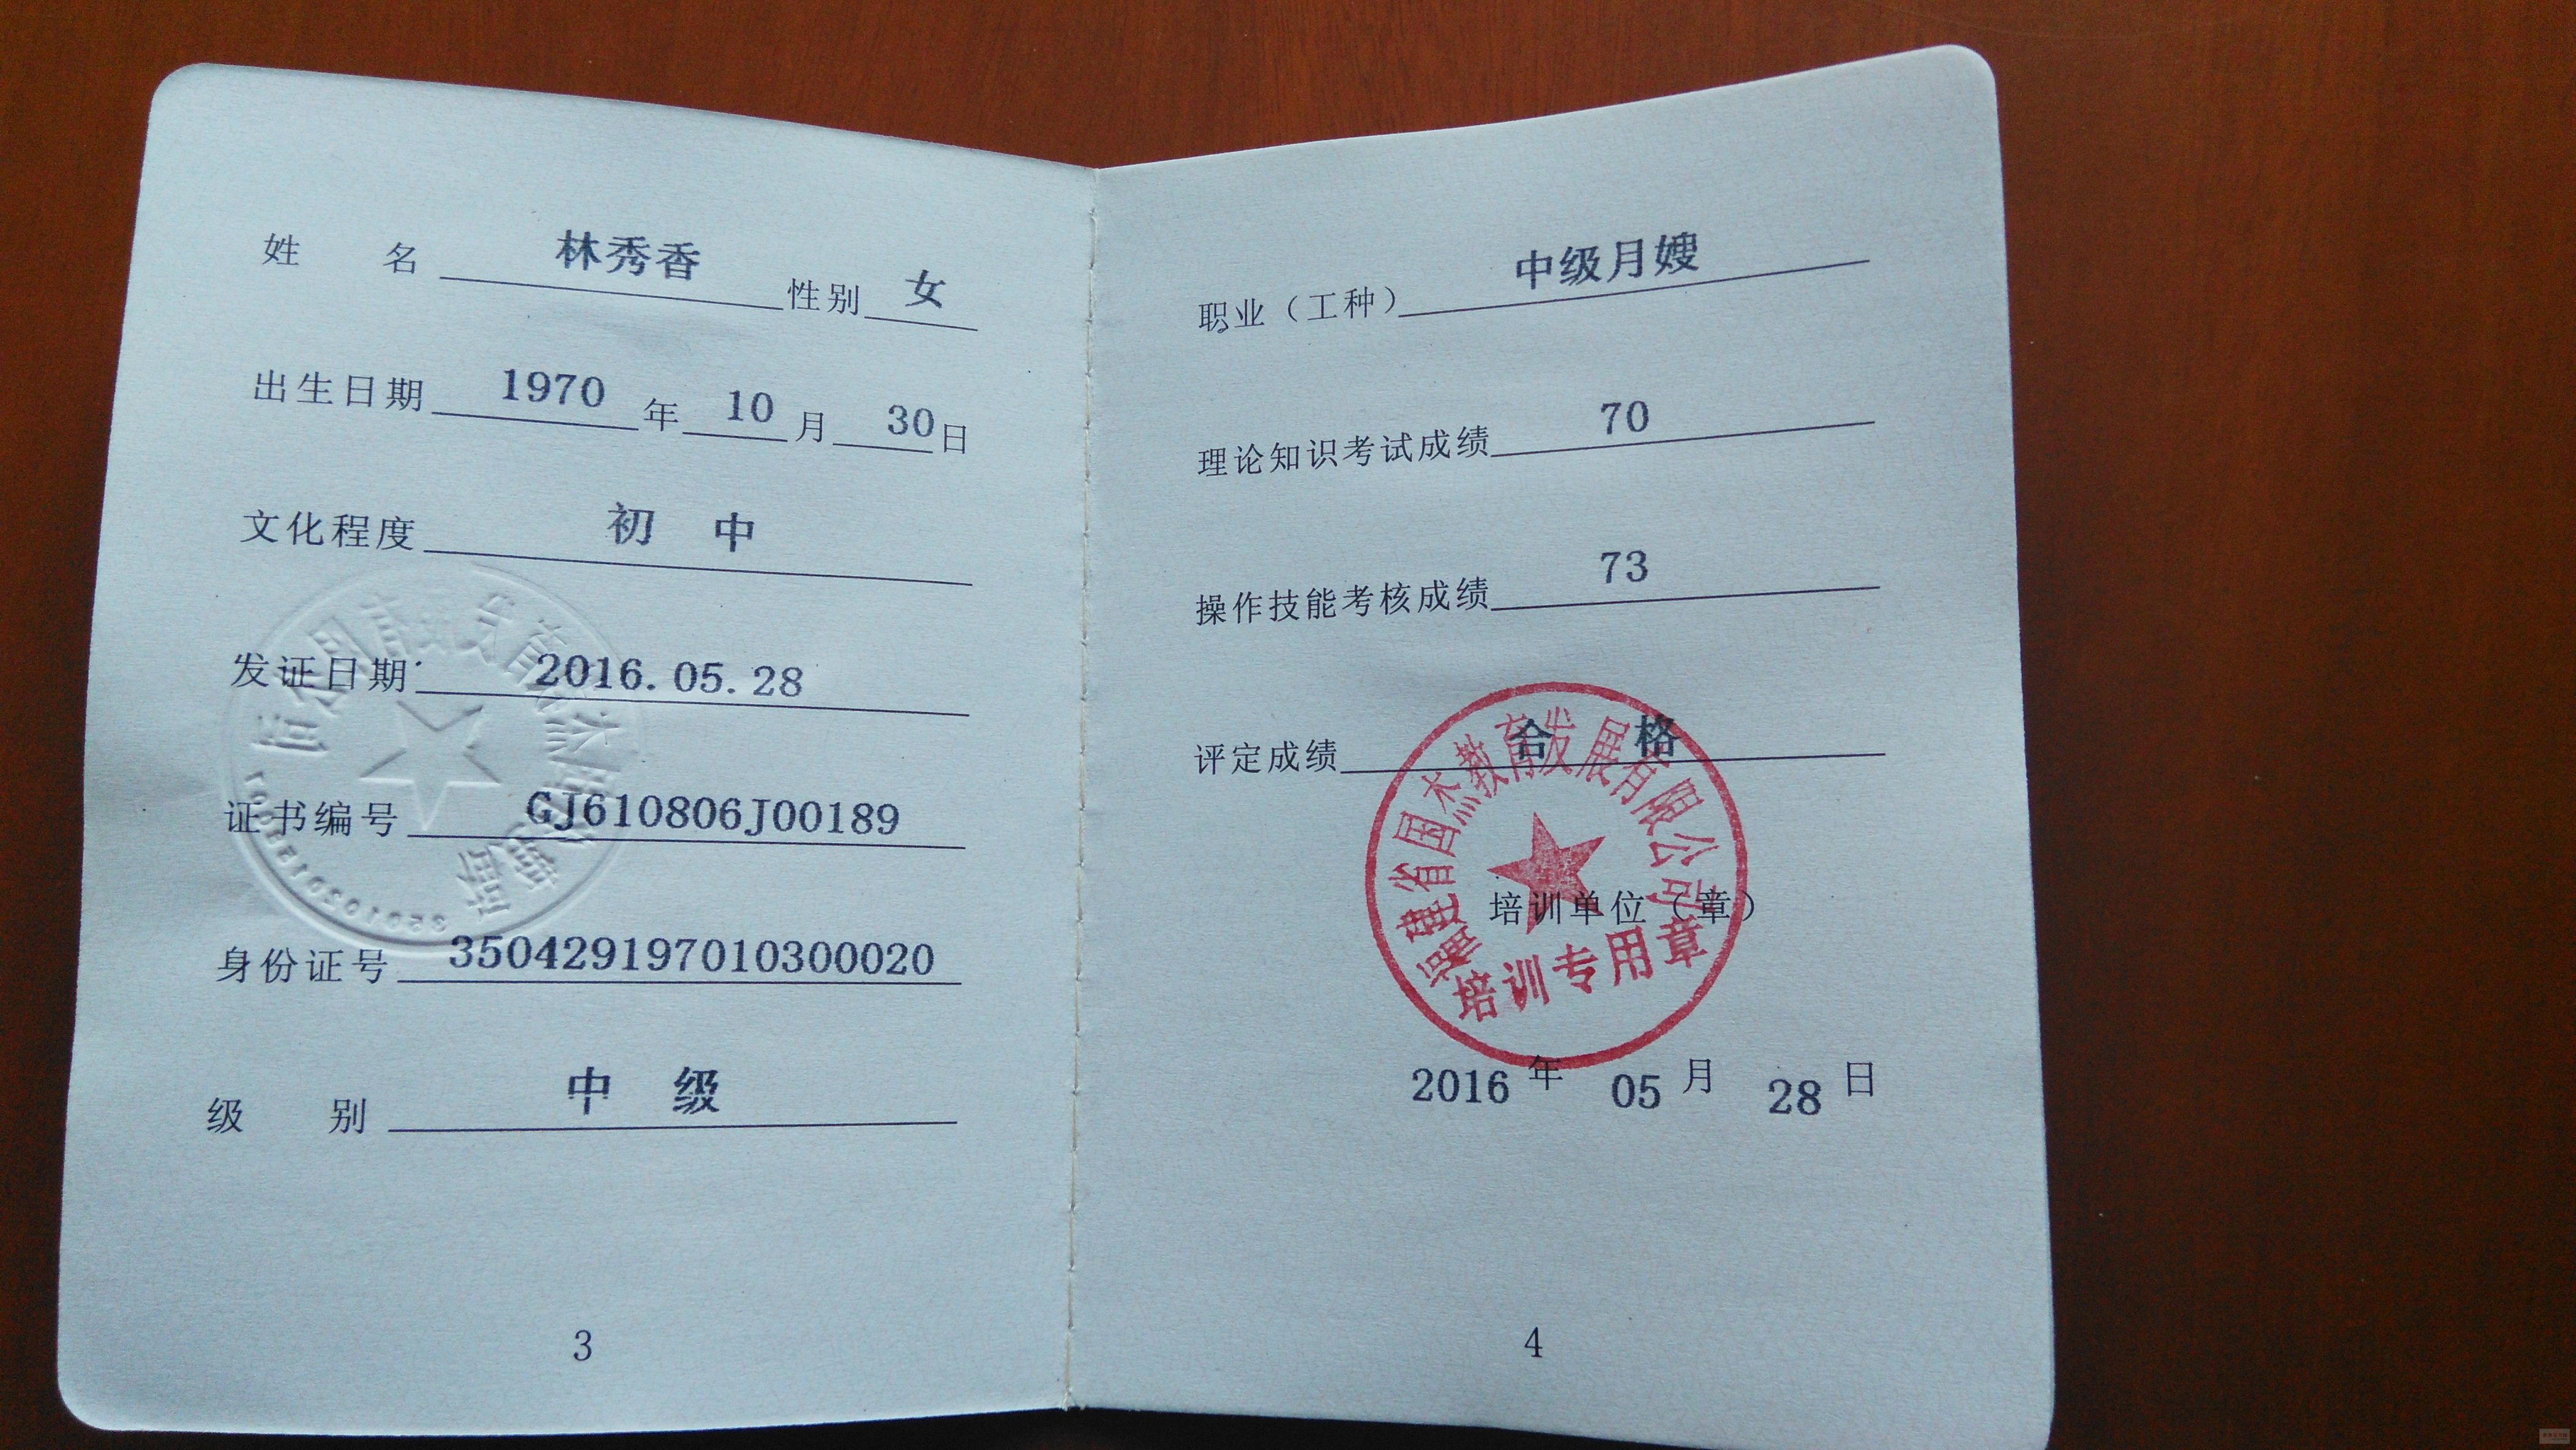 姓 名 林秀香 性别 女
出生日期 1970 年 10 月 30 日
文化程度 初 中
发证日期 2016.05.28
证书编号 GJ610806J00189
身份证号 350429197010300020
级 别 中 级
3
职业（工种） 中级月嫂
理论知识考试成绩 70
操作技能考核成绩 73
评定成绩 合 格
福建省国杰教育发展有限公司
培训单位（章）
培训专用章
2016 年 05 月 28 日
4